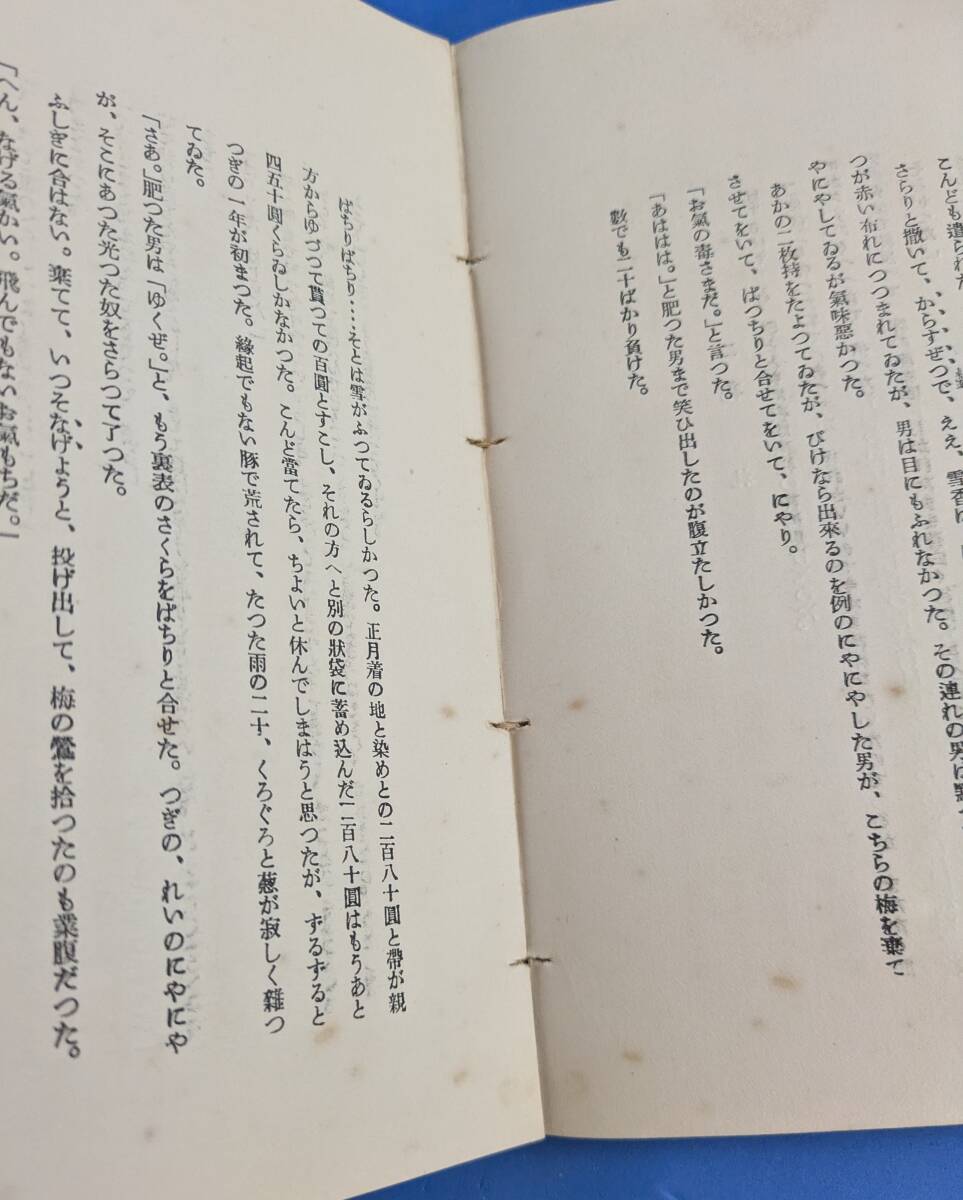 こんども遣られた
さらりと撒いて、からすぜつで、ええ、雪香は
つが赤い布れにつつまれてゐたが、男は目にもふれなかつた。その連れの男は
やにやしてゐるが氣味惡かつた。
あかの二枚持をたよつてゐたが、びけなら出來るのを例のにやにやした男が、こちらの梅を棄て
させてをいて、ぱつちりと合せてをいて、にやり。
「お氣の毒さまだ。」と言つた。
「あははは。」と肥つた男まで笑ひ出したのが腹立たしかつた。
數でも二十ばかり負けた。
ぱちりぱちり‥‥そとは雪がふつてゐるらしかつた。正月着の地と染めとの二百八十圓と帶が親
方からゆづつて貰つての百圓とすこし、それの方へと別の狀袋に蓄め込んだ二百八十圓はもうあと
四五十圓くらゐしかなかつた。こんど當てたら、ちよいと休んでしまはうと思つたが、ずるずると
つぎの一年が初まつた。緣起でもない豚で荒されて、たつた雨の二十、くろぐろと葱が寂しく雜つ
てゐた。
「さあ。」肥つた男は「ゆくぜ。」と、もう裏表のさくらをぱちりと合せた。つぎの、れいのにやにや
が、そこにあつた光つた奴をさらつて了つた。
ふしぎに合はない。棄てて、いつそなげようと、投げ出して、梅の鶯を拾つたのも業腹だつた。
「へん、なげる氣かい。飛んでもないお氣もちだ。」